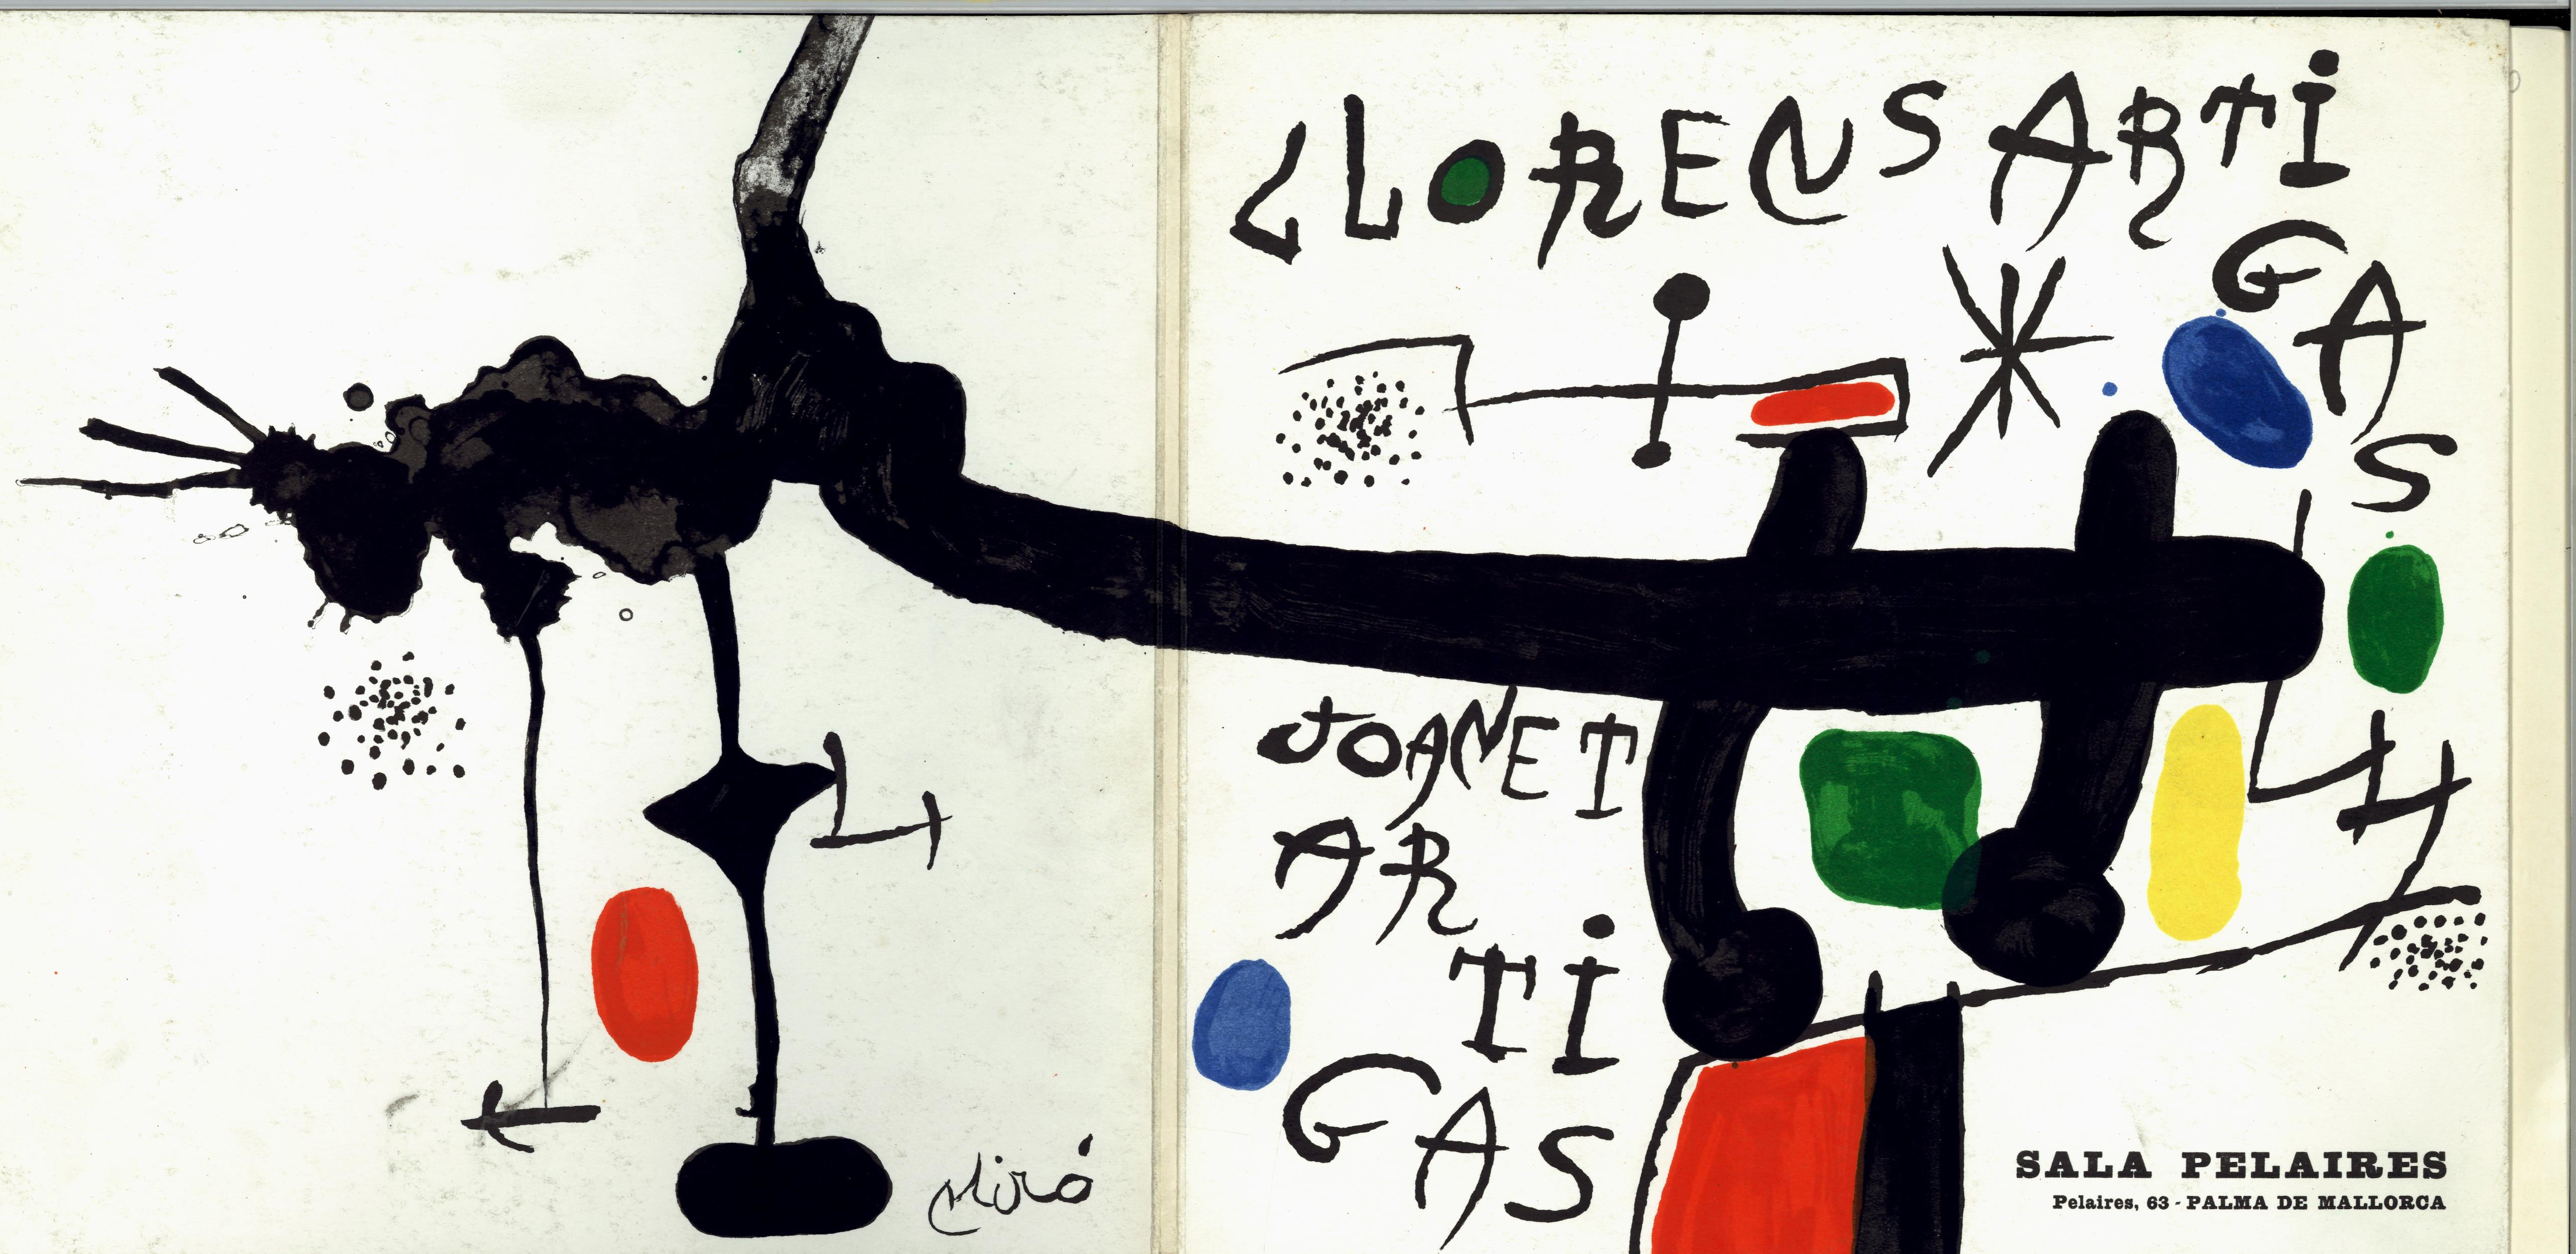 Miró
LLORENS ARTI
GAS
JOANET
AR
TI
GAS
SALA PELAIRES
Pelaires, 63 - PALMA DE MALLORCA